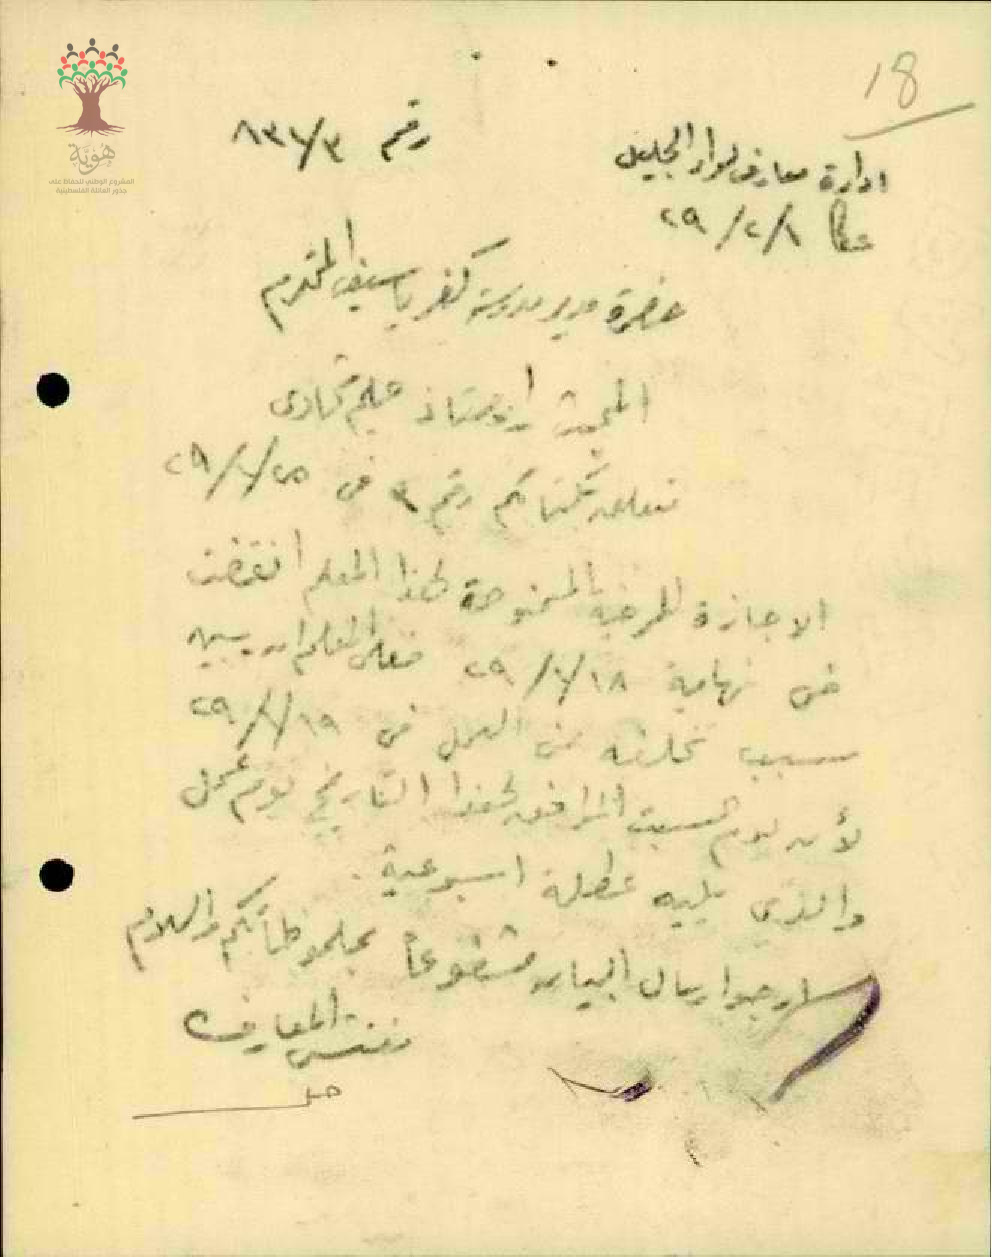 18
هوية
المشروع الوطني للحفاظ على
جذور العائلة الفلسطينية
ادارة معارف لواء الجليل
رقم ٨٣٦/٣
عكا ٢٩/٢/٨
حضرة مدير مدرسة كفر ياسيف المحترم
الاستاذ
رقم في ٢٩/١/٢٥
الاجازة المرضية الممنوحة لهذا المعلم انقضت
في نهاية ٢٩/١/١٨ فعلى المعلم ان يبين
سبب تخلفه عن العمل في ٢٩/١/١٩
لأن يوم السبت الموافق لهذا التاريخ يوم عمل
والذي يليه عطلة اسبوعية.
ارجو ارسال البيان مشفوعاً بملحوظاتكم والسلام
مفتش المعارف